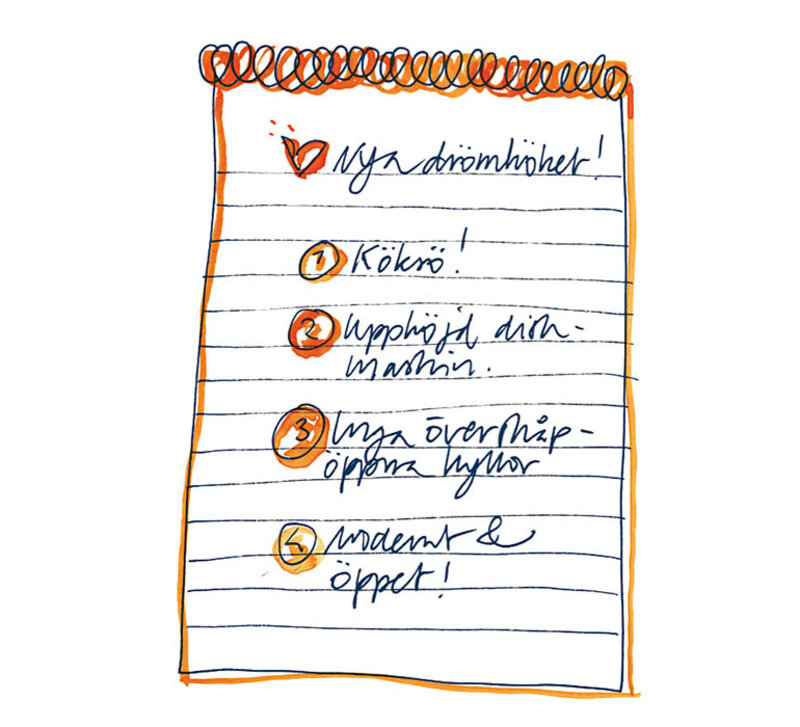 Nya drömköket!
1 Köksö!
2 Upphöjd disk-
maskin.
3 Inga överskåp-
öppna hyllor
4 Modernt &
öppet!